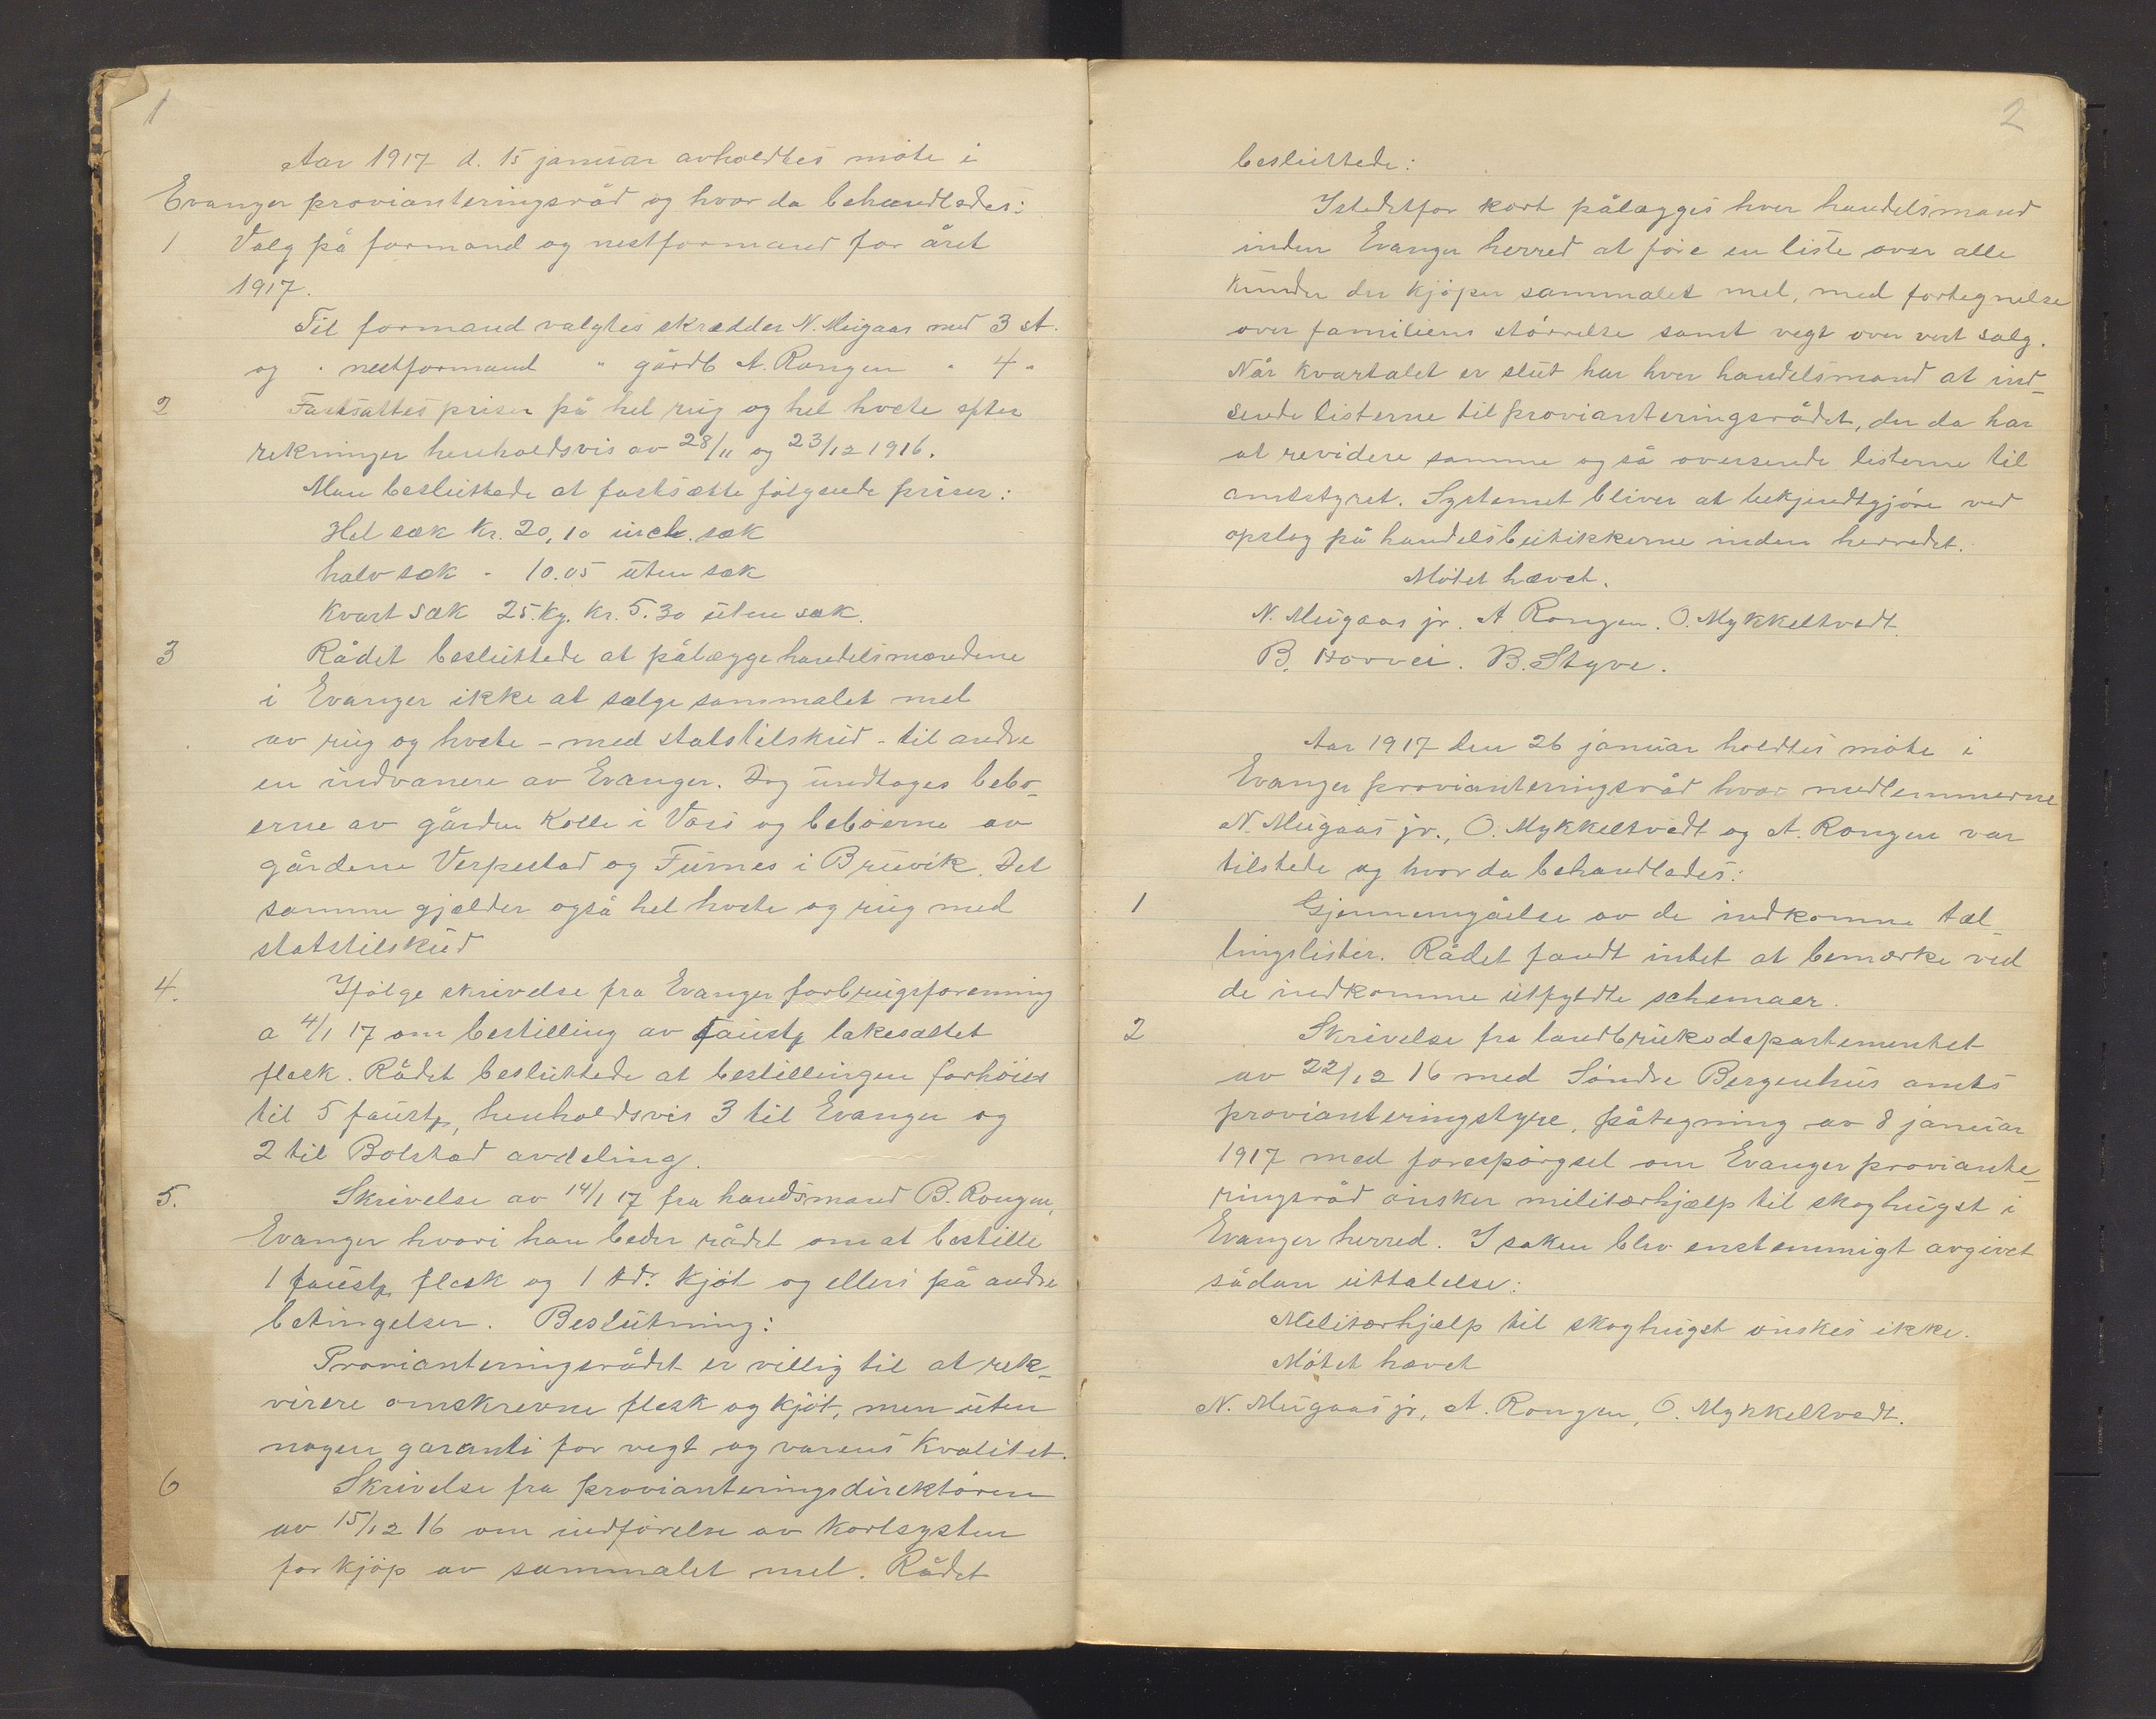 1
Aar 1917 d. 15 januar avholdtes möte i
Evanger provianteringsråd og hvor da behandledes:
1 Valg på formand og nestformand for året
1917.
Til formand valgtes skrædder N. Mugaas med 3 st.
og " nestformand " gårdb A. Rongen " 4 "
2 Fastsattes priser på hel rug og hel hvete efter
rekninger henholdsvis av 28/11 og 23/12 1916.
Man besluttede at fastsætte fölgende priser:
Hel sæk kr. 20,10 incl. sæk
halv sæk - 10.05 uten sæk
kvart sæk 25. kg. kr. 5.30 uten sæk.
3 Rådet besluttede at pålægge handelsmændene
i Evanger ikke at sælge sammalet mel
av rug og hvete - med statstilskud - til andre
en indvånere av Evanger. Dog undtages bebo-
erne av gården Kolle i Voss og beboerne av
gårdene Verpestad og Furnes i Bruvik. Det
samme gjælder også hel hvete og rug med
statstilskud
4. Ifölge skrivelse fra Evanger forbrugsforenning
a 4/1 17 om bestilling av faustp lakesaltet
flesk. Rådet besluttede at bestillingen forhöies
til 5 faustp, henholdsvis 3 til Evanger og
2 til Bolstad avdeling.
5. Skrivelse av 14/1 17 fra handsmand B. Rongen,
Evanger hvori han beder rådet om at bestille
1 faustp flesk og 1 tdr. kjöt og ellers på andre
betingelser. Beslutning:
Provianteringsrådet er villig til at rek-
virere omskrevne flesk og kjöt, men uten
nogen garanti for vegt og varens kvalitet.
6 Skrivelse fra provianteringsdirektören
av 15/12 16 om indförelse av kortsystem
for kjöp av sammalet mel. Rådet
2
besluttede:
Istedetfor kort pålægges hver handelsmand
inden Evanger herred at före en liste over alle
kunder der kjöper sammalet mel, med fortegnelse
over familiens störrelse samt vegt over vert salg.
Når kvartalet er slut har hver handelsmand at ind-
sende listerne til provianteringsrådet, der da har
at revidere samme og så oversende listerne til
amtstyret. Systemet bliver at bekjendtgjöre ved
opslag på handelsbutikkerne inden herredet.
Mötet hævet.
N. Mugaas jr. A Rongen. O. Mykkeltvedt.
B. Horvei. B. Styve.
Aar 1917 den 26 januar holdtes möte i
Evanger provianteringsråd hvor medlemmerne
N. Mugaas jr., O. Mykkeltvedt og A. Rongen var
tilstede og hvor da behandledes:
1 Gjennemgåelse av de indkomne tæl-
lingslister. Rådet fandt intet at bemærke ved
de indkomne utfyldte schemaer.
2 Skrivelse fra landbruksdepartementet
av 22/12 16 med Söndre Bergenhus amts
provianteringstyre, påtegning av 8 januar
1917 med forespörgsel om Evanger proviante-
ringsråd önsker militærhjælp til skoghugst i
Evanger herred. I saken blev enstemmigt avgivet
sådan uttalelse:
Militærhjælp til skoghugst önskes ikke.
Mötet hævet
N. Mugaas jr, A. Rongen, O. Mykkeltvedt.